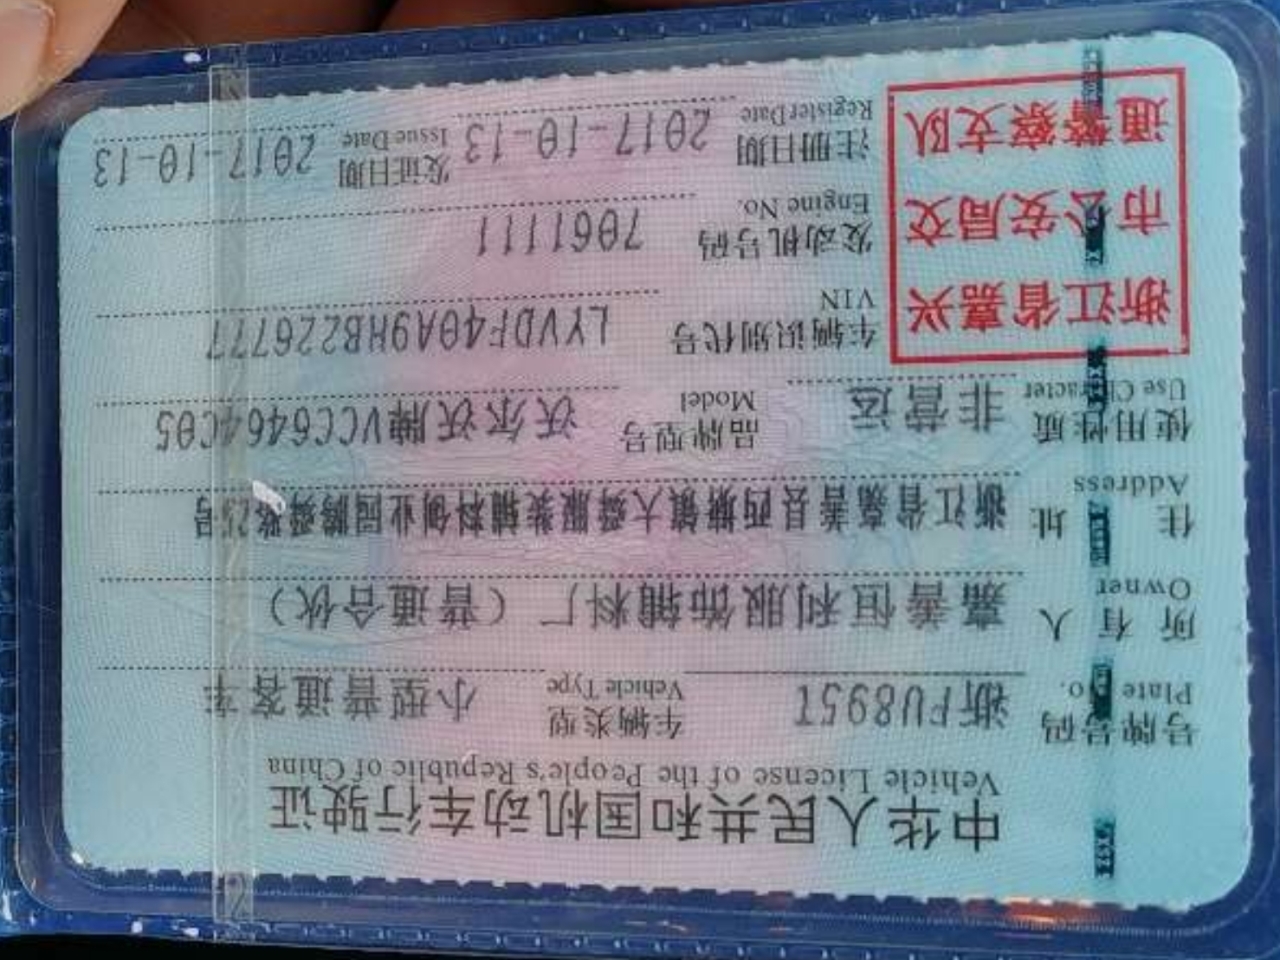 中华人民共和国机动车行驶证
Vehicle License of the People's Republic of China
号牌号码 浙FU895T 车辆类型 小型普通客车
Plate No. Vehicle Type
所有人 嘉善恒利服饰辅料厂（普通合伙）
Owner
住址 浙江省嘉善县西塘镇大舜服装辅料创业园鹏舜路 号
Address
使用性质 非营运 品牌型号 沃尔沃牌VCC6464C05
Use Character Model
浙江省嘉兴
市公安局交
通警察支队
车辆识别代号 LYVDF40A9HB226777
VIN
发动机号码 7061111
Engine No.
注册日期 2017-10-13 发证日期 2017-10-13
Register Date Issue Date